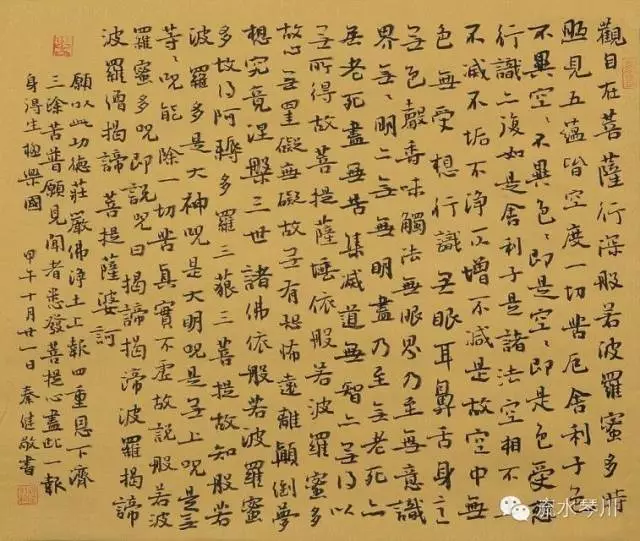 觀自在菩薩行深般若波羅蜜多時
照見五蘊皆空度一切苦厄舍利子色
不異空〻不異色〻即是空〻即是色受想
行識亦復如是舍利子是諸法空相不生
不滅不垢不淨不增不減是故空中無
色無受想行識無眼耳鼻舌身意
無色聲香味觸法無眼界乃至無意識
界無〻明亦無無明盡乃至無老死亦
無老死盡無苦集滅道無智亦無得以
無所得故菩提薩埵依般若波羅蜜多
故心無罣礙無礙故無有恐怖遠離顛倒夢
想究竟涅槃三世諸佛依般若波羅蜜
多故得阿耨多羅三藐三菩提故知般若
波羅多是大神呪是大明呪是無上呪是無
等〻呪能除一切苦真實不虛故說般若波
羅蜜多呪即說呪曰揭諦揭諦波羅揭諦
波羅僧揭諦 菩提薩婆訶
願以此功德莊嚴佛淨土上報四重恩下濟
三塗苦普願見聞者悉發菩提心盡此一報
身得生極樂國 甲午十月廿一日 秦健敬書
流水琴川